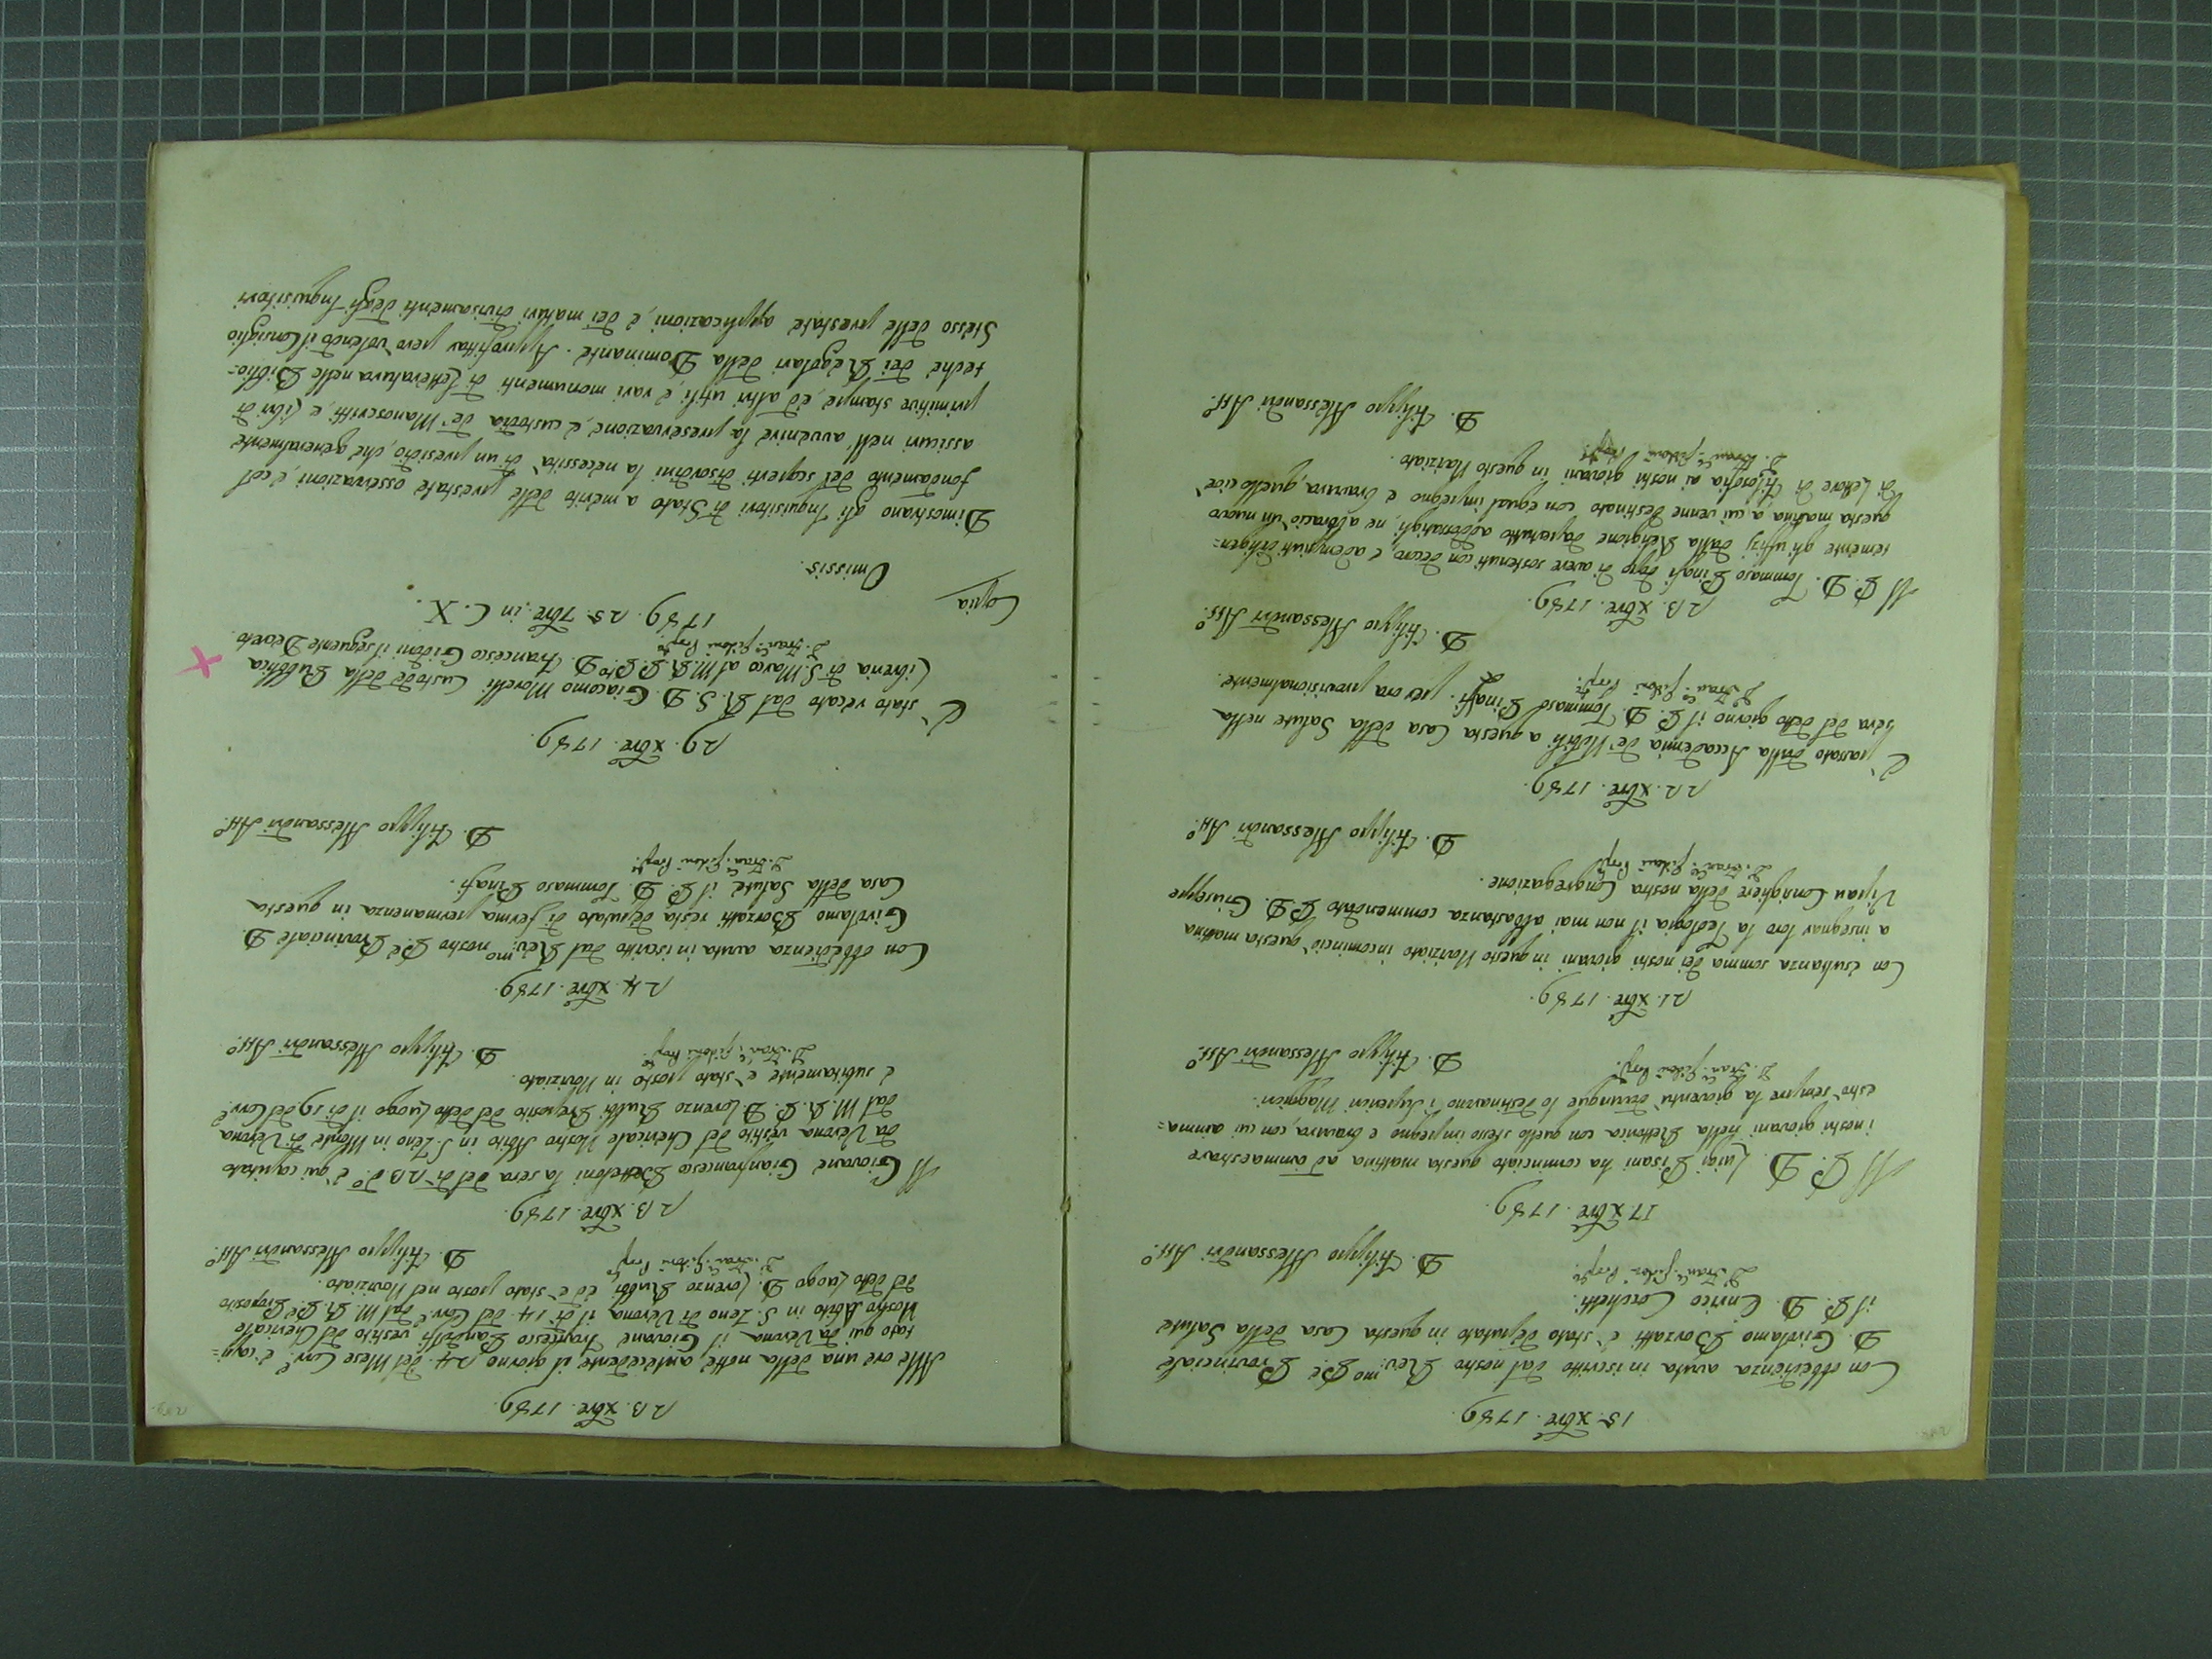 15. Xbre. 1789.
Con obbedienza avuta in iscritto dal nostro Rev:mo Pre Provinciale
D. Girolamo Borzatti è stato deputato in questa Casa della Salute
il P. D. Enrico Corchetti.
D. Fran:co Gidoni Prep:to
D. Filippo Alessandri Att.o
17. Xbre. 1789.
Il P. D. Luigi Pisani ha cominciato questa mattina ad ammaestrare
i nostri giovani nella Rettorica con quello stesso impegno e bravura, con cui amma=
estrò sempre la gioventù dovunque lo destinarono i Superiori Maggiori.
D. Fran:co Gidoni Prep:to
D. Filippo Alessandri Att.o
21. Xbre. 1789.
Con esultanza somma dei nostri giovani in questo Noviziato incominciò questa mattina
a insegnar loro la Teologia il non mai abbastanza commendato P. D. Giuseppe
Pujati Consigliere della nostra Congregazione.
D. Fran:co Gidoni Prep:to
D. Filippo Alessandri Att.o
22. Xbre. 1789.
È passato dalla Accademia de' Nobili a questa Casa della Salute nella
sera del detto giorno il P. D. Tommaso Pinafi. per ora provisionalmente.
D. Fran:co Gidoni Prep:to
D. Filippo Alessandri Att.o
23. Xbre. 1789.
Il P. D. Tommaso Pinafi dopo di avere sostenuti con decoro, e adempiuti diligen=
temente gli uffizj dalla Religione dapertutto addossatigli, ne abbracciò un nuovo
questa mattina, a cui venne destinato con egual impegno e bravura, quello cioè
di Lettore di Filosofia ai nostri giovani in questo Noviziato.
D. Fran:co Gidoni Prep:to
D. Filippo Alessandri Att.o
23. Xbre. 1789.
Alle ore una della notte antecedente il giorno 24. del Mese Corr.e è capi=
tato qui da Verona il Giovane Francesco Landolfi vestito del Chericale
Nostro Abito in S. Zeno di Verona il dì 14. del Corr.e dal M. R. P.e Preposito
del detto Luogo D. Lorenzo Rubbi, ed è stato posto nel Noviziato.
D. Fran:co Gidoni Prep:to
D. Filippo Alessandri Att.o
23. Xbre. 1789.
Il Giovane Gianfrancesco Bettoloni la sera del dì 23 d.o è qui capitato
da Verona vestito del Chericale Nostro Abito in S. Zeno in Monte di Verona
dal M. R. P. D. Lorenzo Rubbi Preposito del detto Luogo il dì 19 del Corr.e
e subitamente è stato posto in Noviziato.
D. Fran:co Gidoni Prep:to
D. Filippo Alessandri Att.o
24. Xbre. 1789.
Con obbedienza avuta in iscritto dal Rev:mo nostro P.e Provinciale D.
Girolamo Borzatti resta deputato di ferma permanenza in questa
Casa della Salute il P. D. Tommaso Pinafi.
D. Fran:co Gidoni Prep:to
D. Filippo Alessandri Att.o
29. Xbre. 1789.
È stato recato dal R. S. D. Giacomo Morelli Custode della Pubblica
Libreria di S. Marco al M. R. P. Pto D. Francesco Gidoni il seguente Decreto.
D. Fran:co Gidoni Prep:to
1789. 25. 7bre. in C. X.
Copia
Omissis.
Dimostrano gli Inquisitori di Stato a merito delle prestate osservazioni, e col
fondamento dei scoperti disordini la necessità di un presidio, che generalmente
assicuri nell'avvenire la preservazione, e custodia de' Manoscritti, e, libri di
primitive stampe, ed altri utili, e rari monumenti di Letteratura nelle Biblio-
teche dei Regolari della Dominante. Approfittar però volendo il Consiglio
Stesso delle prestate applicazioni, e dei maturi divisamenti degli Inquisitori